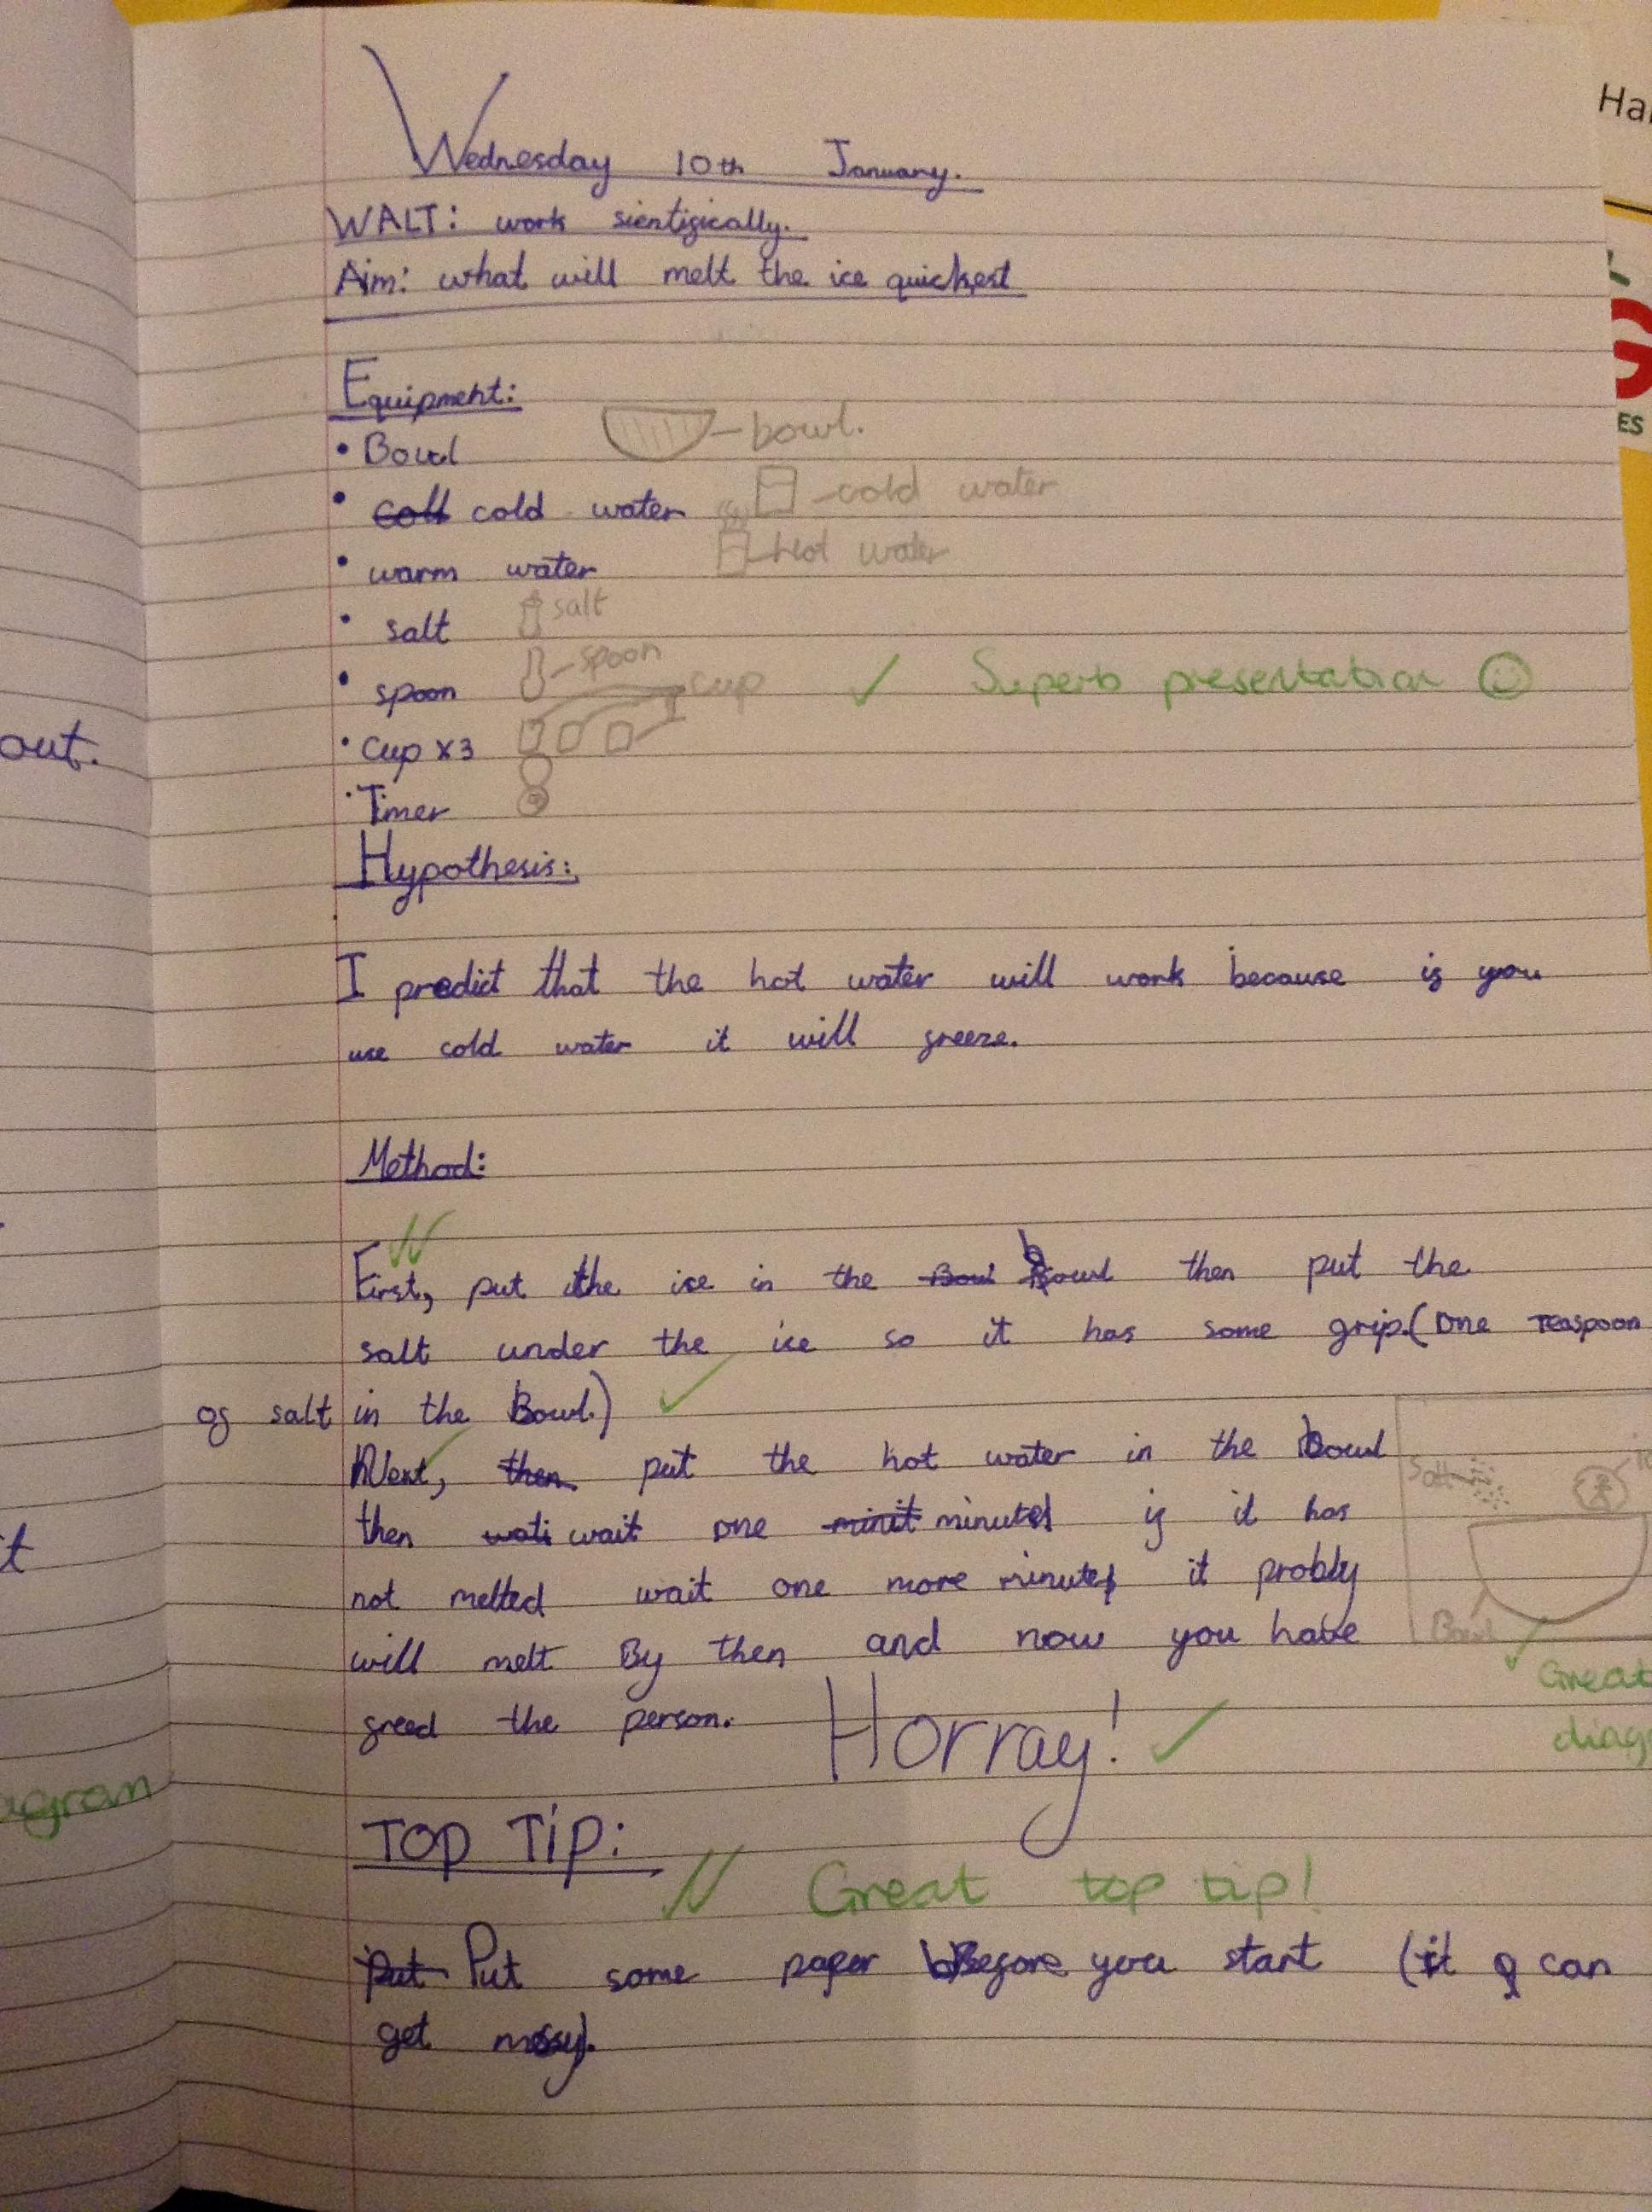 Wednesday 10th January.
WALT: work sientifically.
Aim: what will melt the ice quickest
Equipment:
• Bowl
bowl.
• cold water
cold water
• warm water
Hot water
• salt
salt
• spoon
spoon
cup
✓ Superb presentation ☺
• Cup x3
• Timer
Hypothesis:
I predict that the hot water will work because if you
use cold water it will freeze.
Method:
First, put the ice in the bowl then put the
salt under the ice so it has some grip. (One Teaspoon
of salt in the Bowl.)
Next, put the hot water in the bowl
then wait one minute if it has
not melted wait one more minute it probly
will melt By then and now you have
freed the person. Horray!
Salt
Bowl
Great
diag
TOP TiP:
Great top tip!
Put some paper before you start (it can
get messy).
out.
t
agram
Ha
G
ES